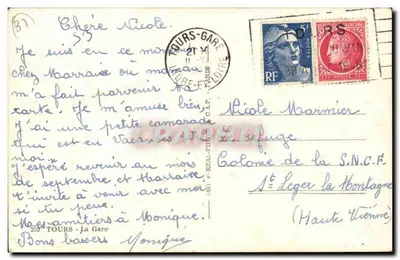 37
Chère Nicole.
Je suis en ce moment
chez Marraine où maman
m'a fait parvenir ta
carte. Je m'amuse bien
j'ai une petite camarade
qui est en vacances
moi.
J'espère revenir au mois
de septembre et Marraine
t'invite à venir avec moi
si tu peux.
Mes amitiés à Monique.
Bons baisers Monique
TOURS - La Gare
TOURS-GARE
INDRE-ET-LOIRE
RF
TOURS
Nicole Marmier
Le Refuge
Colonie de la S.N.C.F.
St Leger la Montagne
(Haute Vienne)